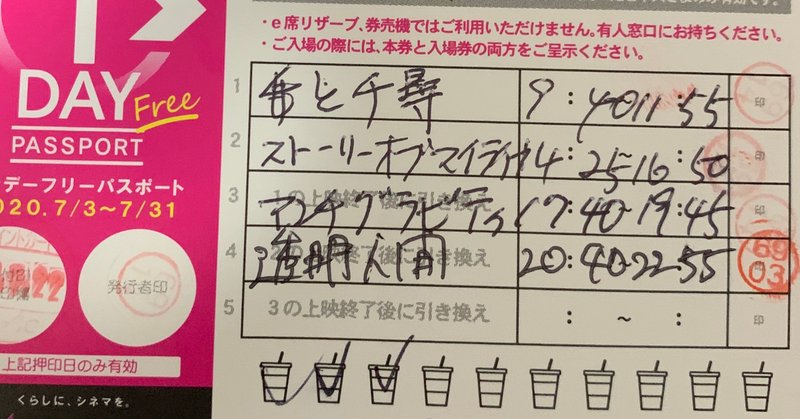 ・e席リザーブ、券売機ではご利用いただけません。有人窓口にお持ちください。
・ご入場の際には、本券と入場券の両方をご呈示ください。
DAY Free
PASSPORT
デーフリーパスポート
2020.7/3~7/31
発行者印
上記押印日のみ有効
くらしに、シネマを。
1 と千尋 9:40 11:55 印
2 ストーリーオブマイライフ 14:25-16:50
3 1の上映終了後に引き換え アンチグラビティ 17:40-19:45 印
4 の上映終了後に引き換え 透明人間 20:40-22:55 印 69 03
5 3の上映終了後に引き換え : ~ : 印